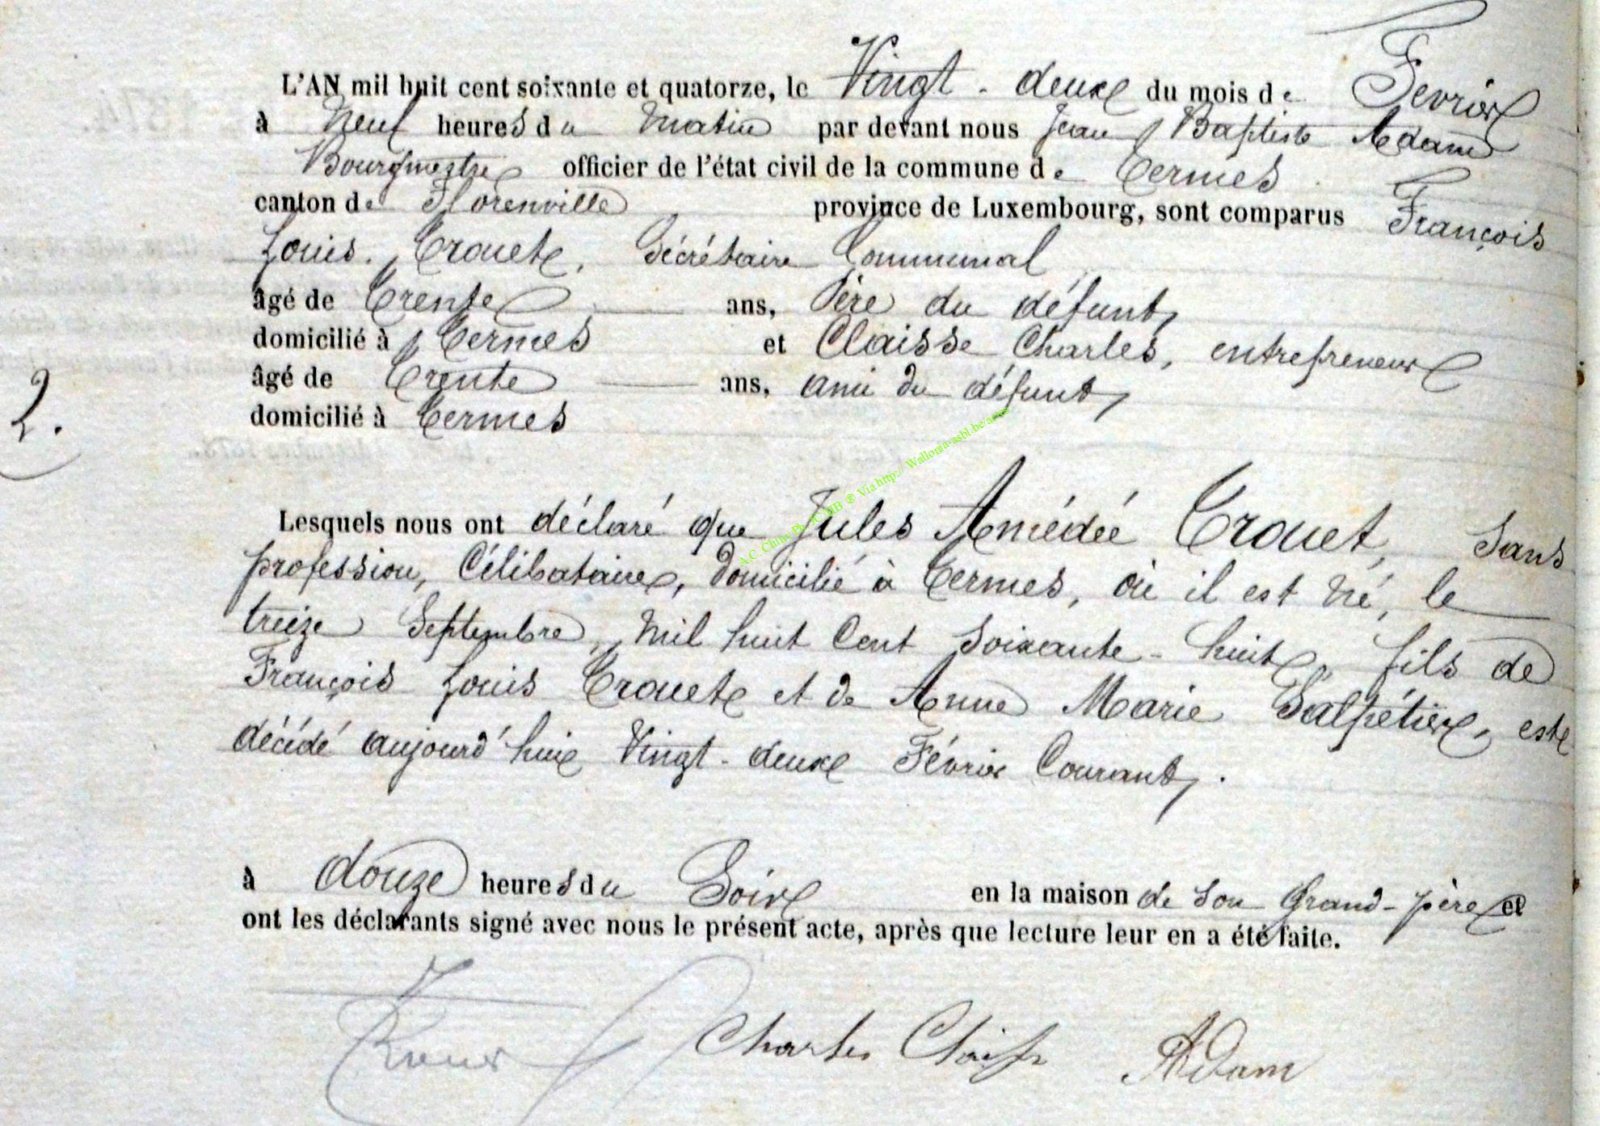 L'AN mil huit cent soixante et quatorze, le Vingt-deux du mois de Fevrier
à Neuf heures du matin par devant nous Jean Baptiste Adam
Bourgmestre officier de l'état civil de la commune de Termes
canton de Florenville province de Luxembourg, sont comparus François
Louis Trouet, Sécrétaire Communal
âgé de Trente ans, Père du défunt,
domicilié à Termes et Claisse Charles, entrepreneur
âgé de Trente ans, ami du défunt,
domicilié à Termes
2.
Lesquels nous ont déclaré que Jules Amédée Trouet, Sans
profession, Célibataire, domicilié à Termes, où il est né, le
treize Septembre, mil huit Cent Soixante-huit, fils de
François Louis Trouet et de Anne Marie Salpétier, est
décédé aujourd'hui Vingt-deux Février Courant.
à douze heures du Soir en la maison de son Grand-père et
ont les déclarants signé avec nous le présent acte, après que lecture leur en a été faite.
Trouet Charles Claisse Adam